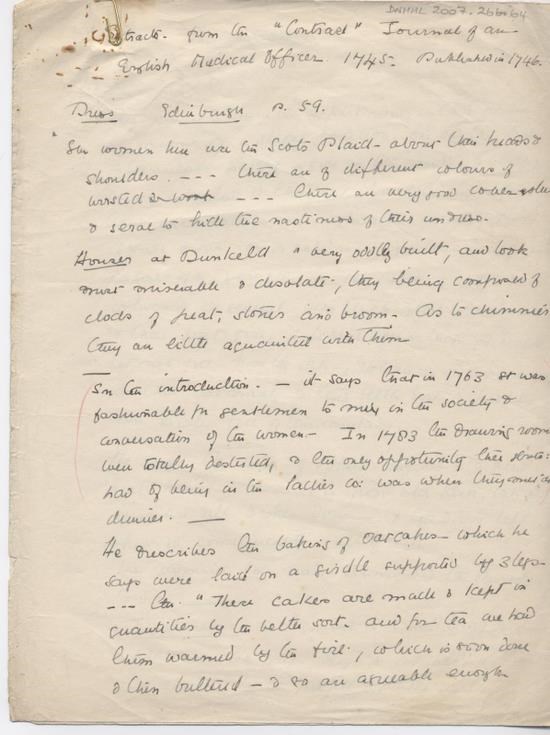 DNHHL 2007.266.64
Extracts from the "Contract" Journal of an
English Medical Officer 1745- Published in 1746.
Dress Edinburgh p. 59.
The women here use the Scots Plaid - about their heads &
shoulders. - - - These are of different colours of
worsted - - - These are very good covers
& serve to hide the nastiness of their undress.
Houses at Dunkeld "very oddly built, and look
most miserable & desolate, they being composed of
clods of peat, stones and broom. As to chimnies
they are little acquainted with them
In the introduction. - it says that in 1763 it was
fashionable for gentlemen to in the society &
conversation of the women - In 1783 the drawing rooms
were totally deserted, & the only opportunity
had of being in the ladies co: was when they
dinner. —
He describes the baking of oatcakes - which he
says were laid on a girdle supported by 3 legs -
- - - "These cakes are made & kept in
quantities by the better sort - and for tea we had
them warmed by the fire, which is soon done
& then buttered - & so are agreeable enough